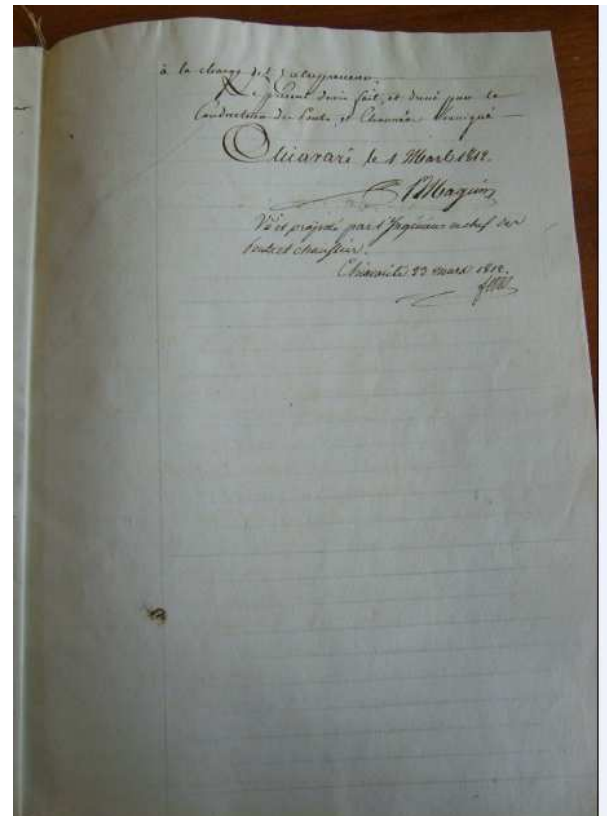 à la charge de l'entrepreneur.
Le présent devis fait et dressé par le
Conducteur des Ponts et Chaussées soussigné
Chiavari le 1 Mars 1812.
Vu et proposé par l'Ingénieur en chef des
ponts et chaussées.
Chiavari le 23 mars 1812.